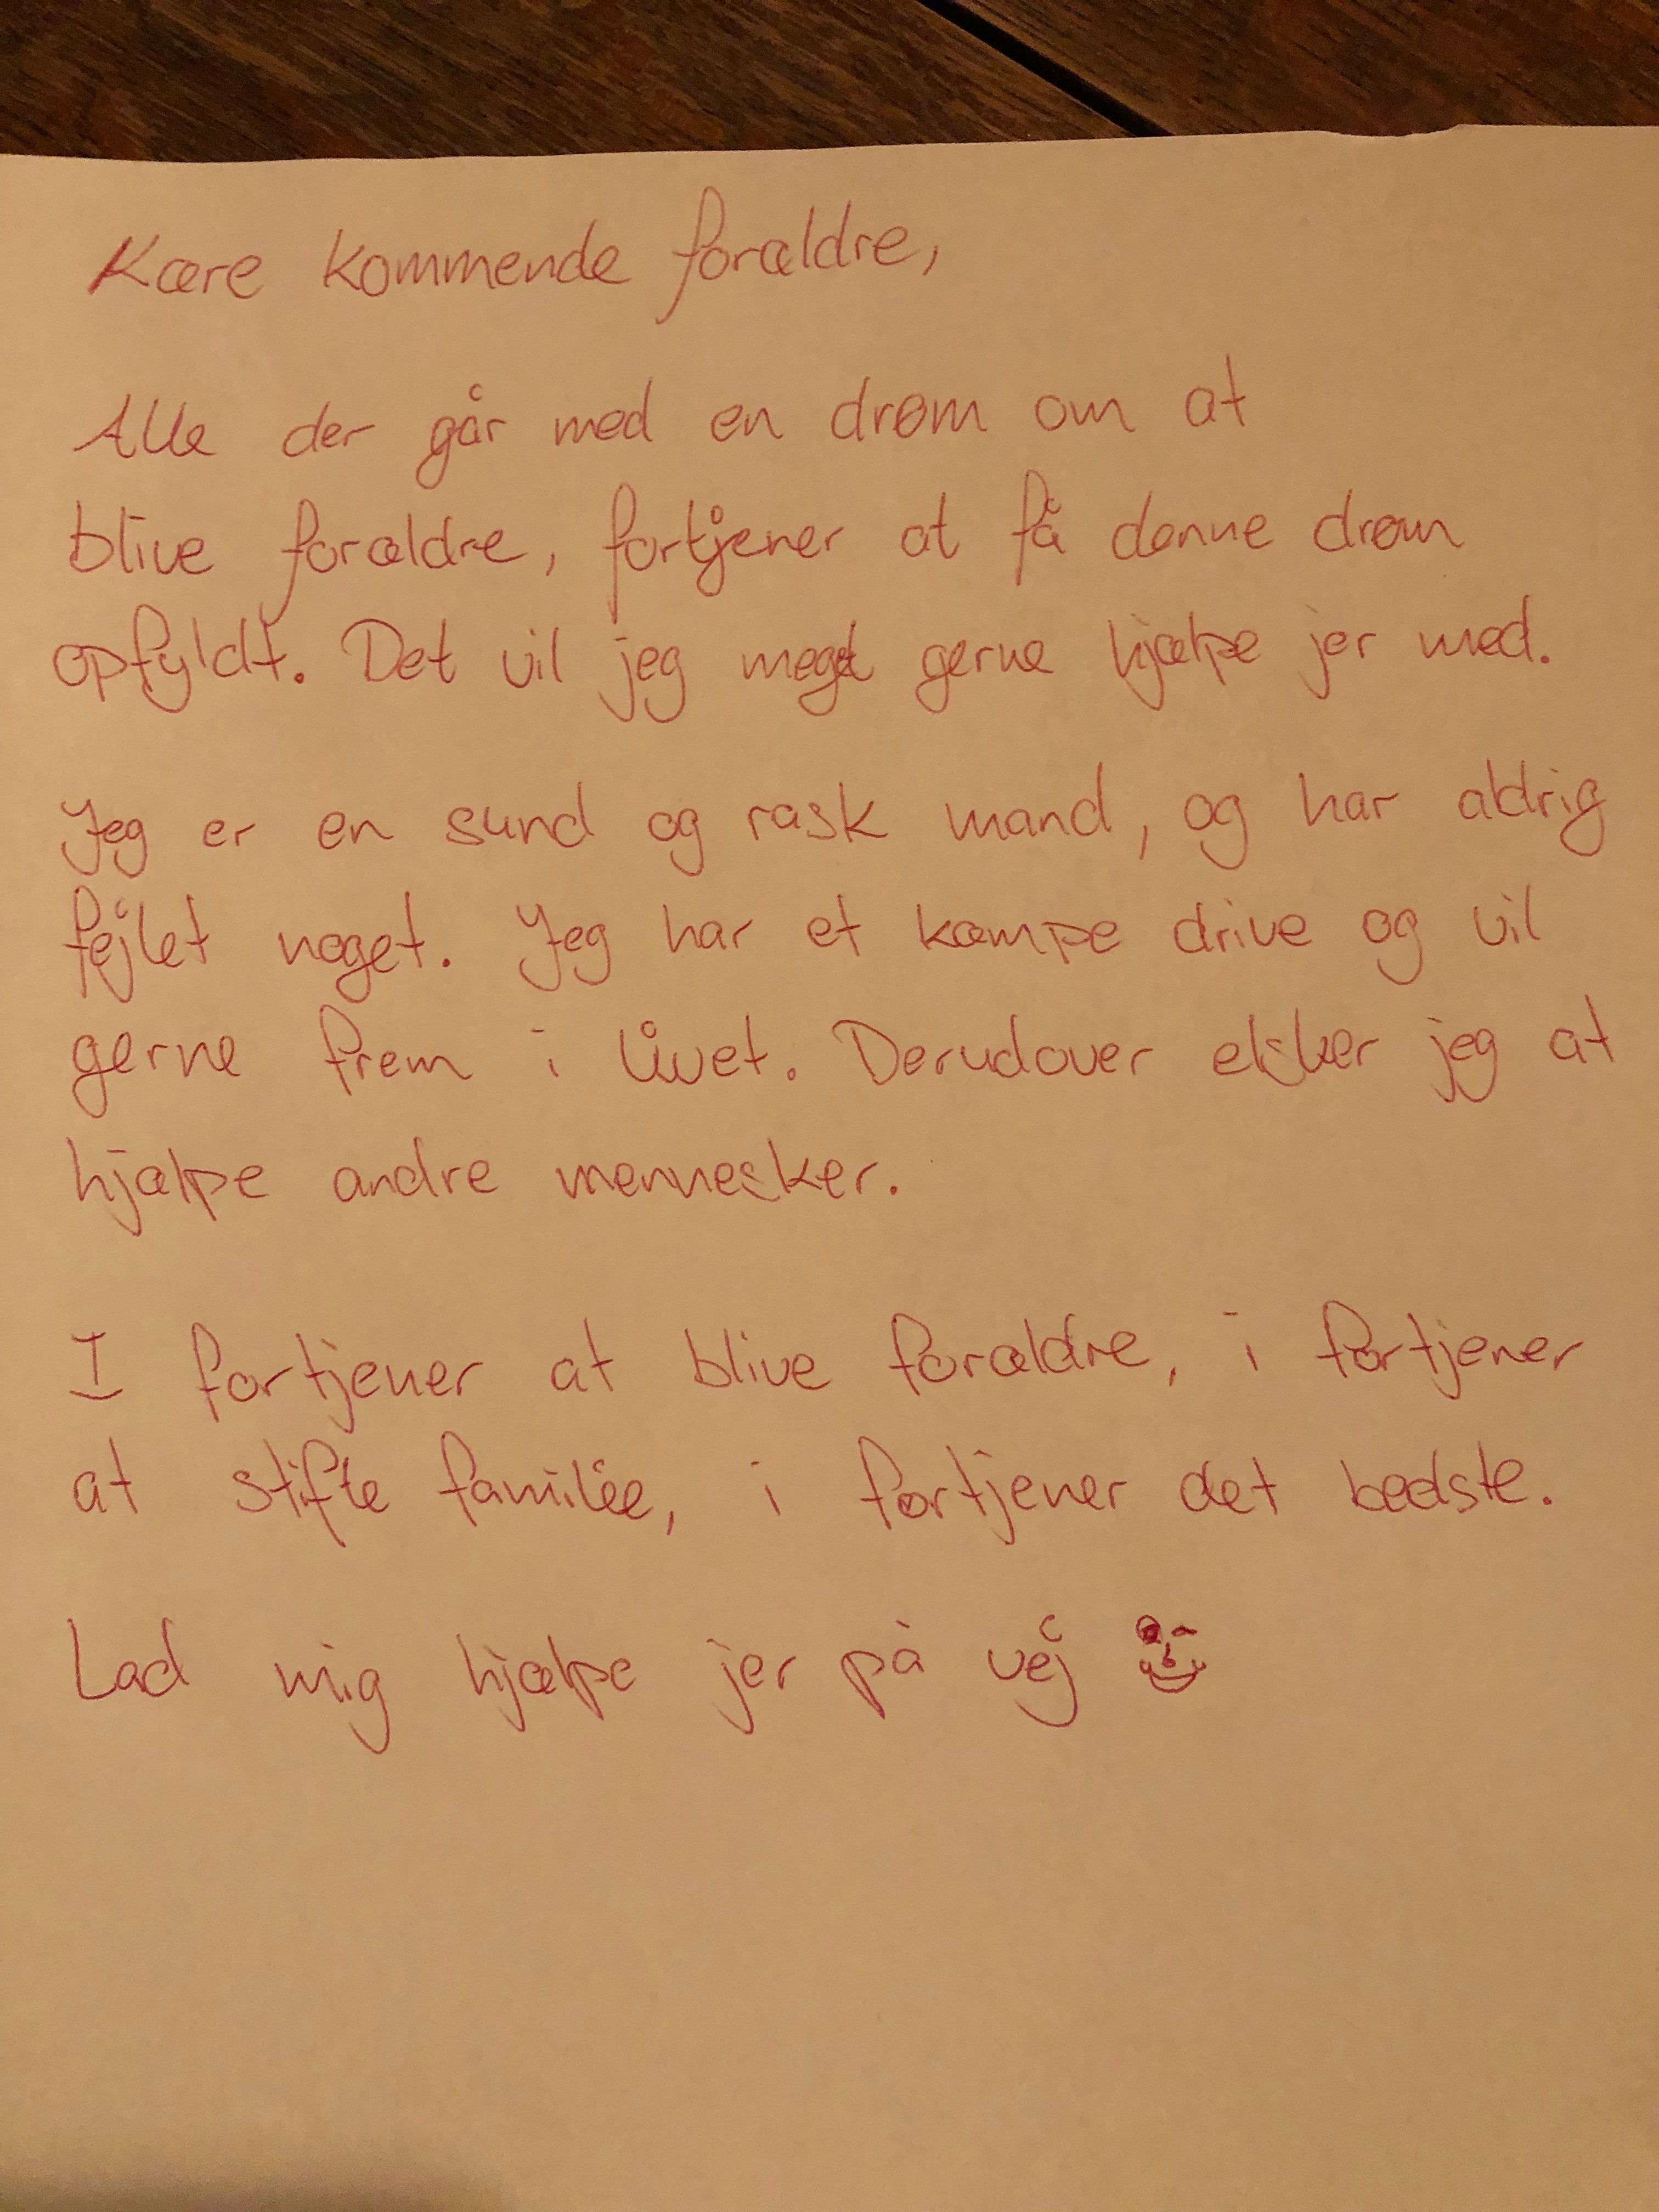 Kære kommende forældre,
Alle der går med en drøm om at
blive forældre, fortjener at få denne drøm
opfyldt. Det vil jeg meget gerne hjælpe jer med.
Jeg er en sund og rask mand, og har aldrig
fejlet noget. Jeg har et kæmpe drive og vil
gerne frem i livet. Derudover elsker jeg at
hjælpe andre mennesker.
I fortjener at blive forældre, i fortjener
at stifte familie, i fortjener det bedste.
Lad mig hjælpe jer på vej